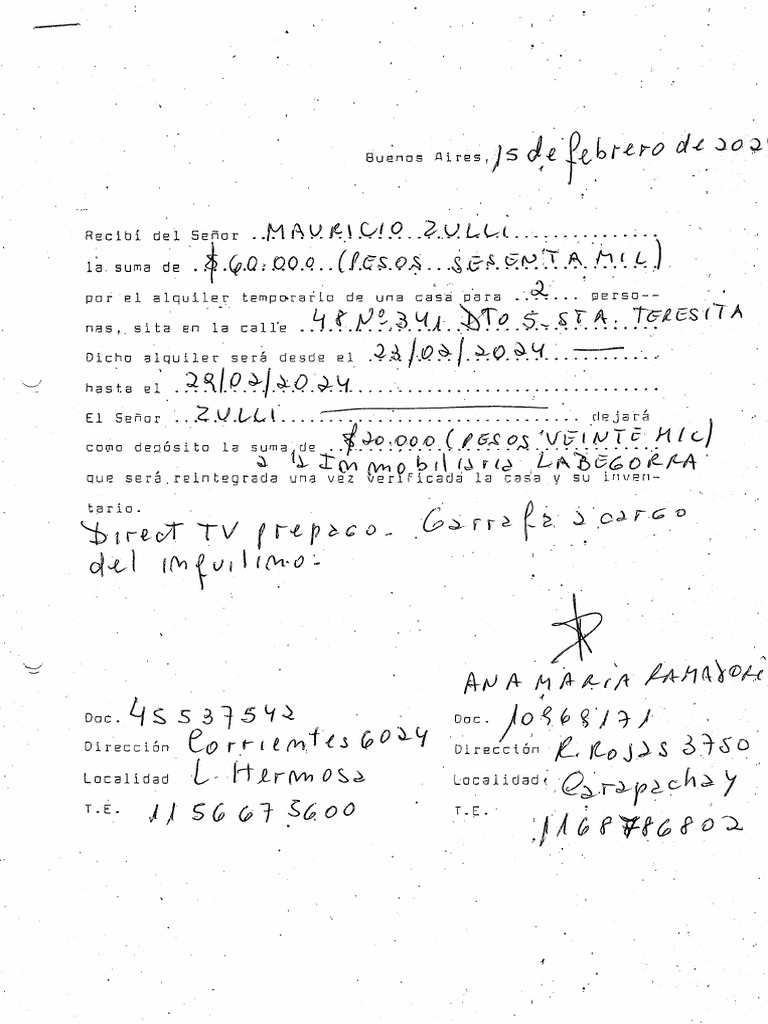 Buenos Aires, 15 de febrero de 202
Recibí del Señor ..MAURICIO ZULLI..............
la suma de .$.60.000..(PESOS...SESENTA MIL)
por el alquiler temporario de una casa para ..2... perso--
nas, sita en la calle ..48.Nº.341. DTO 5. STA. TERESITA
Dicho alquiler será desde el .22/02/2024 ———........
hasta el .29/02/2024..............................
El Señor ..ZULLI ——————————........ dejará
como depósito la suma de ...$20.000 (PESOS VEINTE MIL)
a la Inmobiliaria LABEGORRA
que será reintegrada una vez verificada la casa y su inven-
tario.
Direct TV prepago. Garrafa a cargo
del inquilino.
ANA MARIA
Doc. 45537542
Dirección Corrientes 6024
Localidad L. Hermosa
T.E. 11 5667 3600
Doc. 10868171
Dirección R. Rojas 3750
Localidad Carapachay
T.E. 1168786802